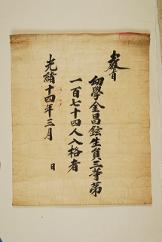 教旨
幼學金昌鉉生員三等第
一百七十四人入格者
光緒十四年三月 日